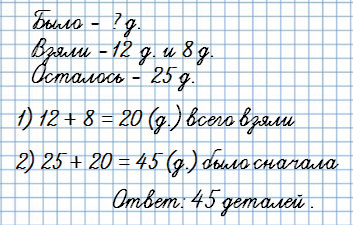 Было - ? д.
Взяли - 12 д. и 8 д.
Осталось - 25 д.
1) 12 + 8 = 20 (д.) всего взяли
2) 25 + 20 = 45 (д.) было сначала
Ответ: 45 деталей.